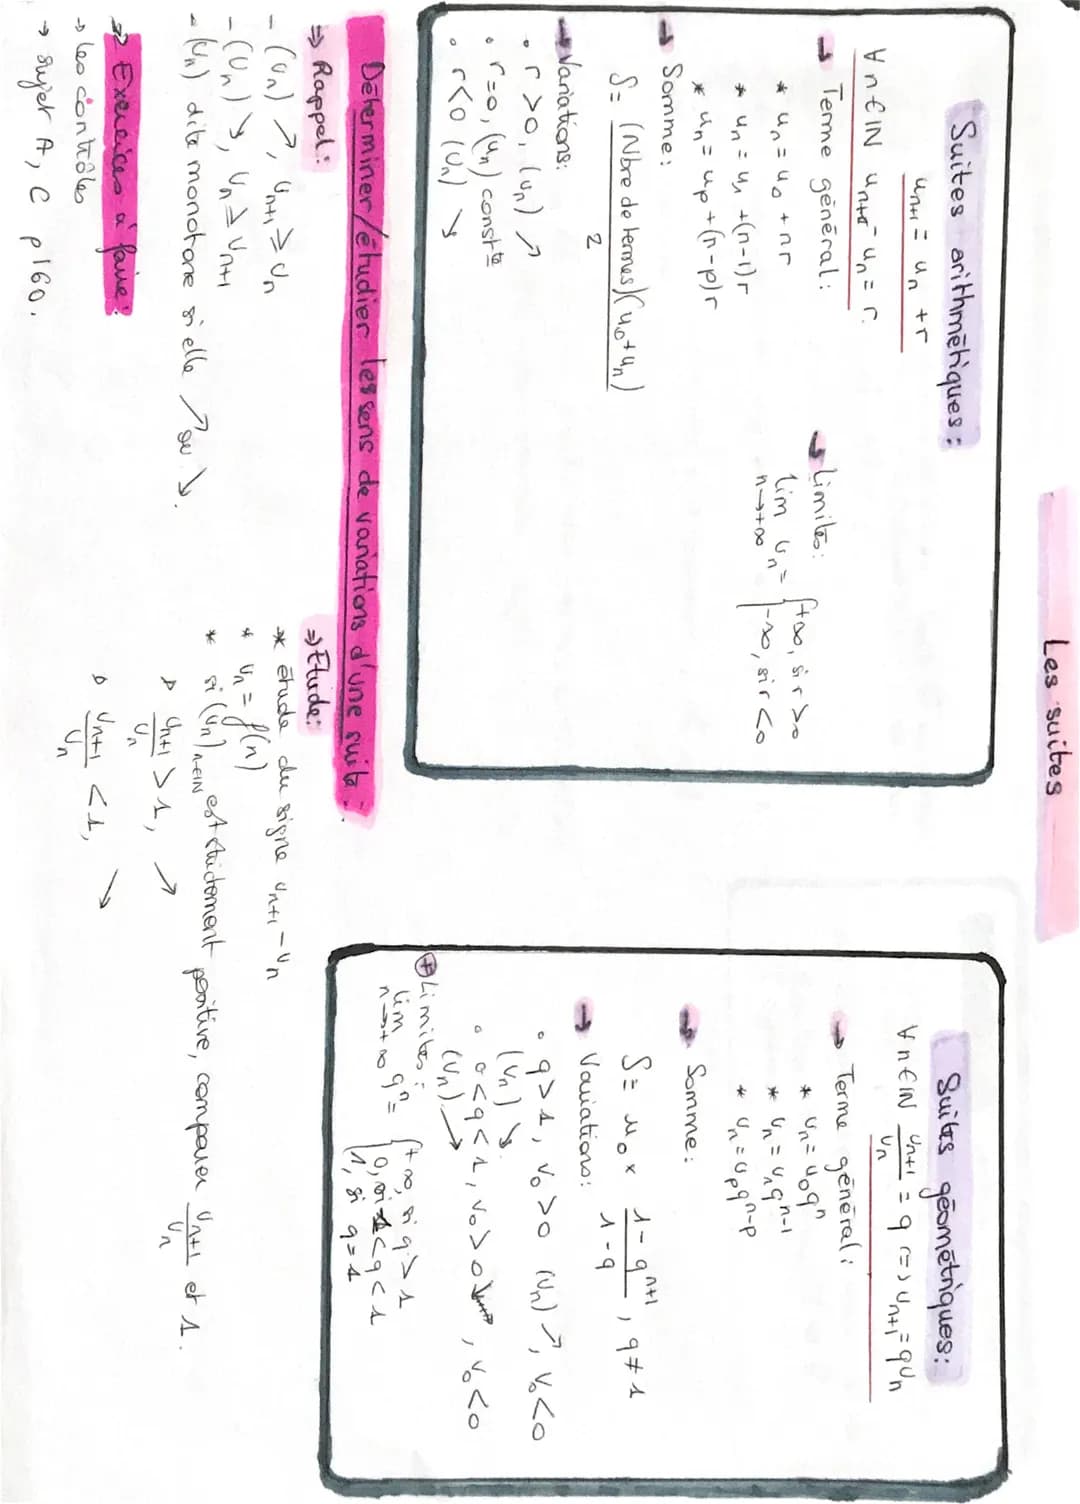 Les suites
Suites arithmétiques:
un+1 = un + r
∀n∈ℕ un+1 - un = r.
→ Terme général:
* un = u0 + nr
* un = u1 + (n-1)r
* un = up + (n-p)r
→ Limites:
lim un = { +∞, si r>0
n→+∞ { -∞, si r<0
→ Somme:
S = (Nbre de termes)(u0+un)
2
→ Variations:
• r>0, (un) ↗
• r=0, (un) constte
• r<0 (un) ↘
Suites géométriques:
∀n∈ℕ un+1/un = q => un+1 = qun
→ Terme général:
* un = u0q^n
* un = u1q^n-1
* un = upq^n-p
→ Somme:
S = u0 × 1-q^n+1 / 1-q, q≠1
→ Variations:
• q>1, v0>0 (vn) ↗, v0<0
(vn) ↘
• 0<q<1, v0>0 ↘, v0<0
(vn) ↗
⊕ Limites:
lim q^n = { +∞, si q>1
n→+∞ { 0, si -1<q<1
{ 1, si q=1
Déterminer/étudier les sens de variations d'une suite:
=> Rappel:
- (un) ↗, un+1 ≥ un
- (un) ↘, un ≥ un+1
- (un) dite monotone si elle ↗ ou ↘.
=> Etude:
* étude du signe un+1 - un
* un = f(n)
* si (un)n∈ℕ est strictement positive, comparer un+1/un et 1.
▷ un+1/un > 1, ↗
▷ un+1/un < 1, ↘
=>> Exercices à faire:
→ les contrôles
→ sujet A, C p160.